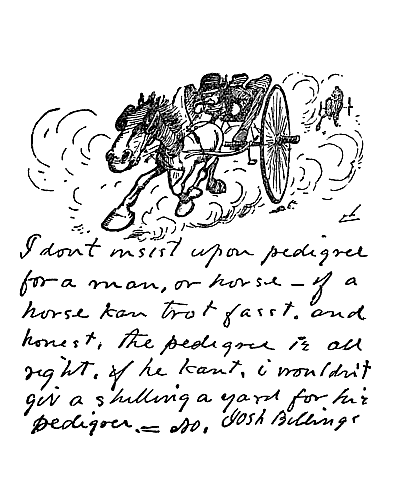 I dont insist upon pedigree
for a man, or horse – if a
horse kan trot fasst. and
honest, the pedigree iz all
right. if he kant, i wouldn't
giv a shilling a yard for hiz
pedigree. = so. Josh Billings